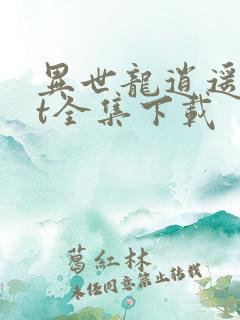 異世龍逍遥
t全集下載
葛紅林
未經同意禁止轉載